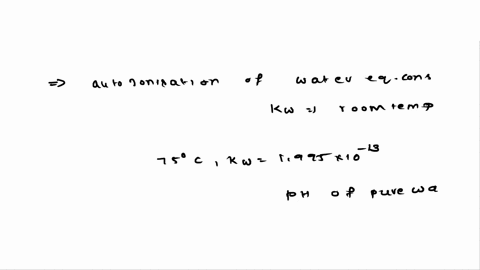 ⇒ autoionization of water eq. cons
Kw = room temp
75° C, Kw = 1.995 × 10⁻¹³
pH of pure wa